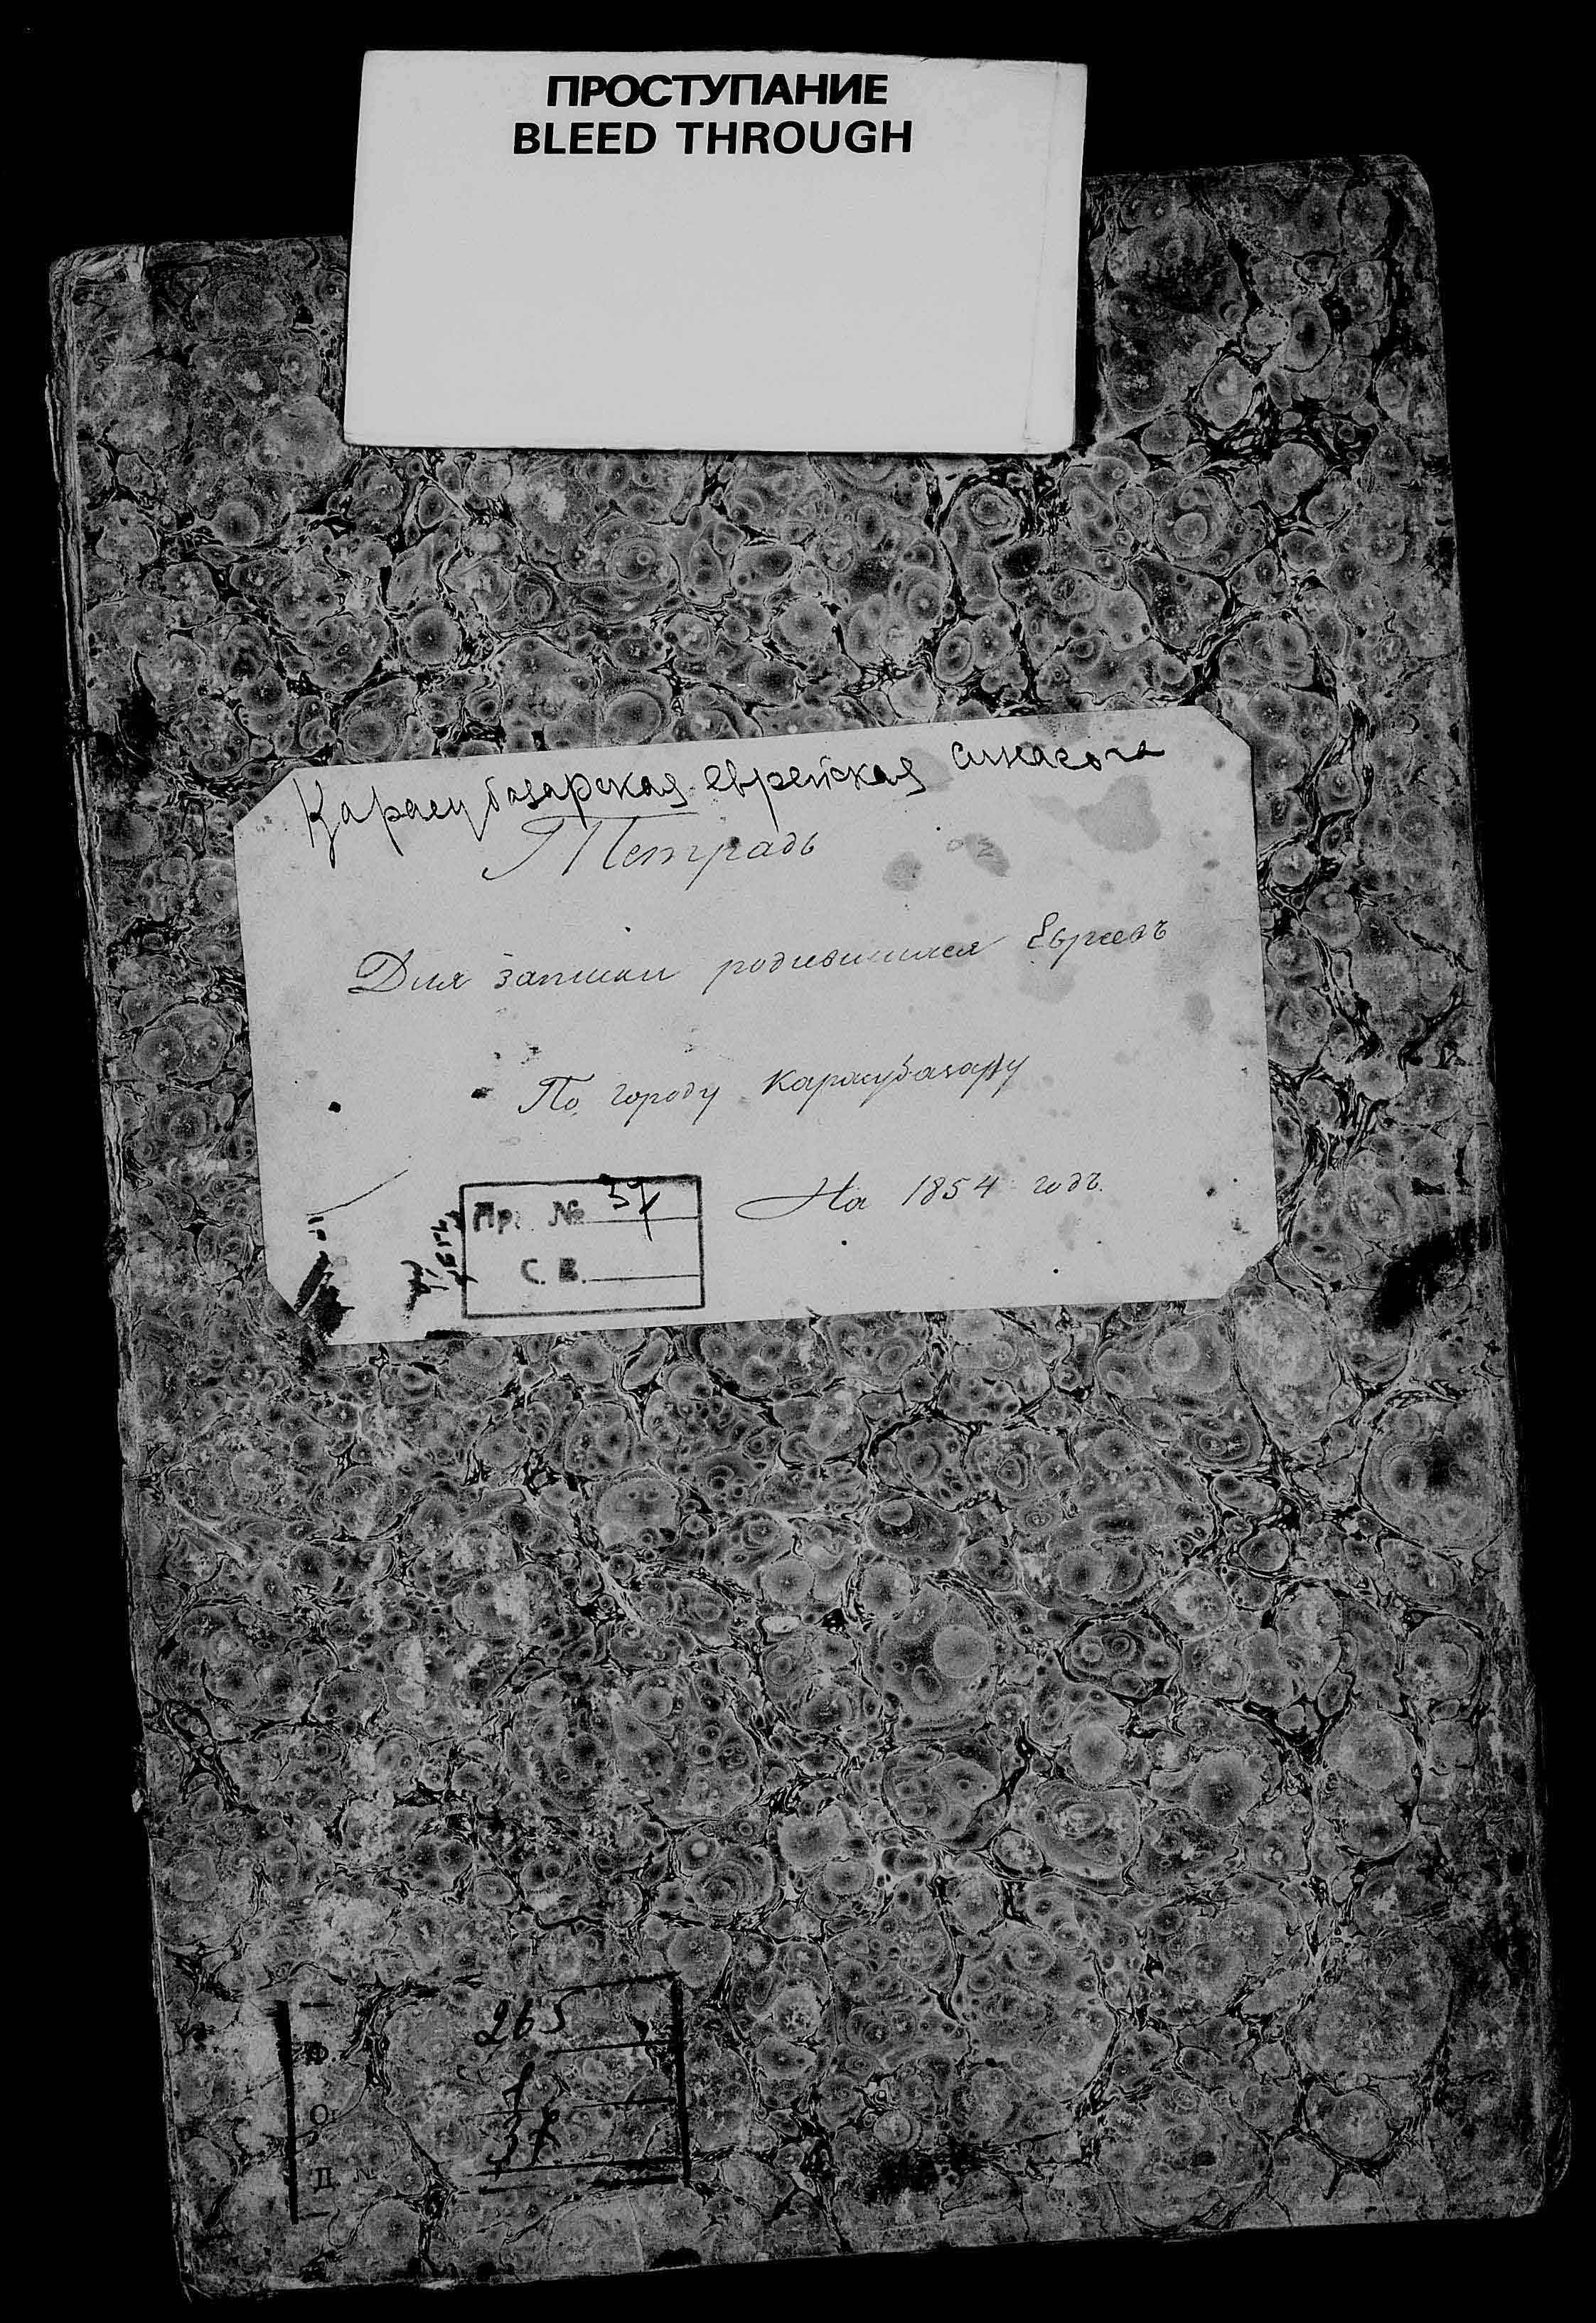 ПРОСТУПАНИЕ
BLEED THROUGH
Карасубазарская еврейская синагога
Тетрадь
Для записки родившихся Евреевъ
По городу Карасубазару
На 1854 годъ.
Пр. № 37
С. В.
Ф. 265
Оп. 1
Д. № 37